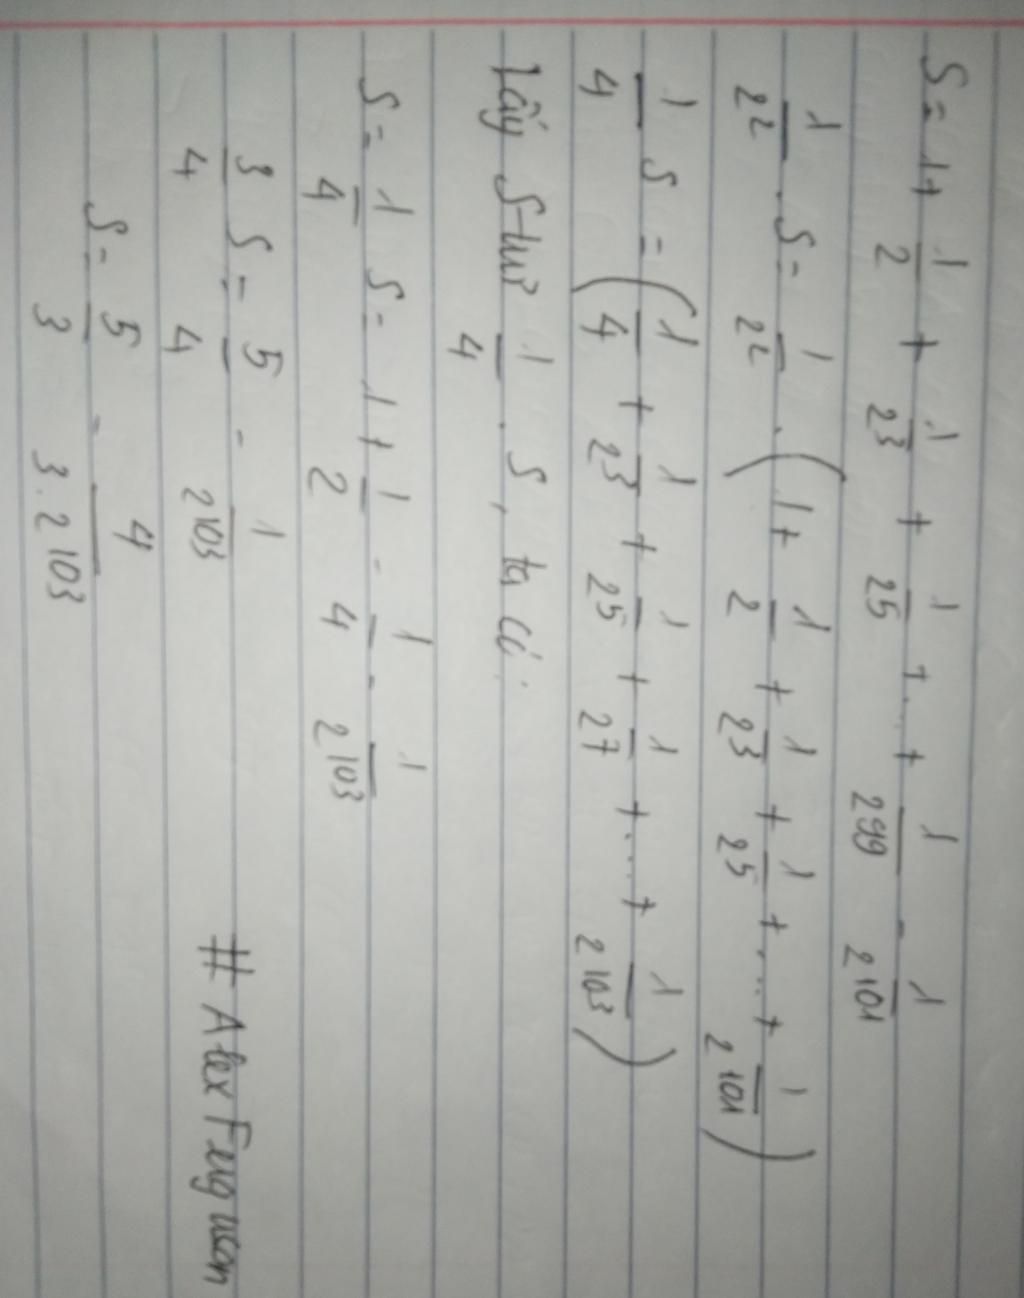 S = 1 + 1/2 + 1/2^3 + 1/2^5 + ... + 1/2^99 - 1/2^101
1/2^2 . S = 1/2^2 . (1 + 1/2 + 1/2^3 + 1/2^5 + ... + 1/2^101)
1/4 S = (1/4 + 1/2^3 + 1/2^5 + 1/2^7 + ... + 1/2^103)
Lấy S trừ 1/4 . S, ta có:
S - 1/4 S = 1 + 1/2 - 1/4 - 1/2^103
3/4 S = 5/4 - 1/2^103
S = 5/3 - 4/3.2^103
# Alex Ferguson